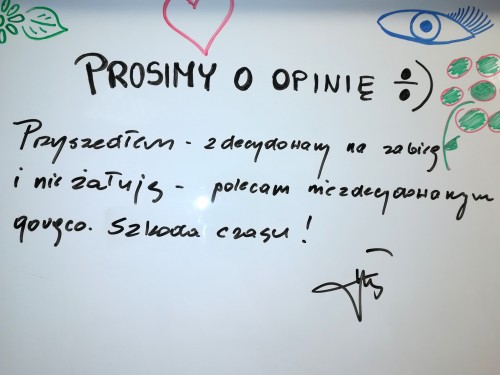 PROSIMY O OPINIĘ :)
Przyszedłem - zdecydowany na zabieg
i nie żałuję - polecam niezdecydowanym
gorąco. Szkoda czasu!